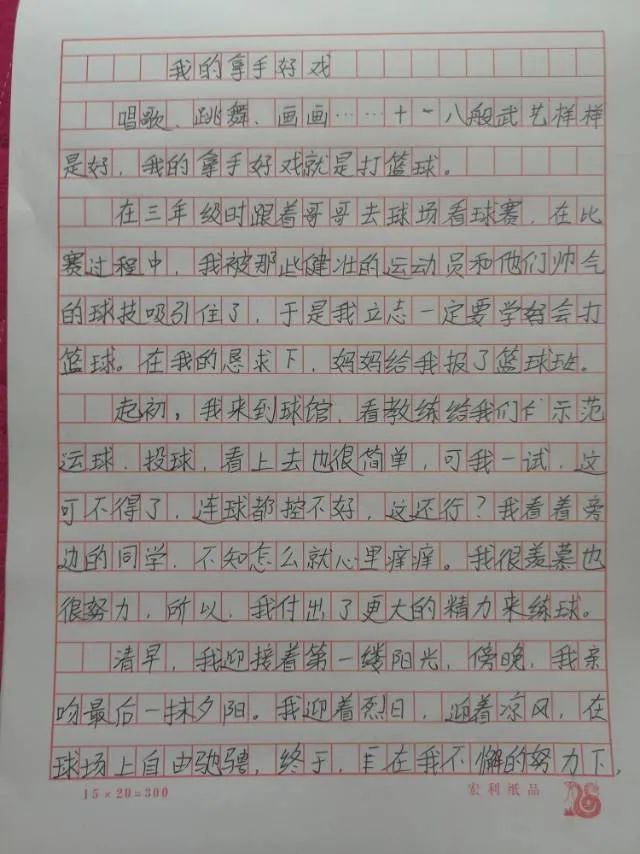 我的拿手好戏
唱歌、跳舞、画画……十八般武艺样样
是好，我的拿手好戏就是打篮球。
在三年级时跟着哥哥去球场看球赛，在比
赛过程中，我被那些健壮的运动员和他们帅气
的球技吸引住了，于是我立志一定要学会打
篮球。在我的恳求下，妈妈给我报了篮球班。
起初，我来到球馆，看教练给我们作示范
运球、投球，看上去也很简单，可我一试，这
可不得了，连球都控不好，这还行？我看着旁
边的同学，不知怎么就心里痒痒。我很羡慕也
很努力，所以，我付出了更大的精力来练球。
清早，我迎接着第一缕阳光，傍晚，我亲
吻最后一抹夕阳。我迎着烈日，迎着凉风，在
球场上自由驰骋，终于，在我不懈的努力下，
15×20=300 宏利纸品